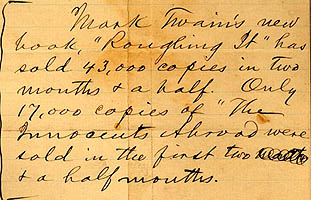 Mark Twain's new
book, "Roughing It" has
sold 43,000 copies in two
months & a half. Only
17,000 copies of "The
Innocents Abroad were
sold in the first two
& a half months.